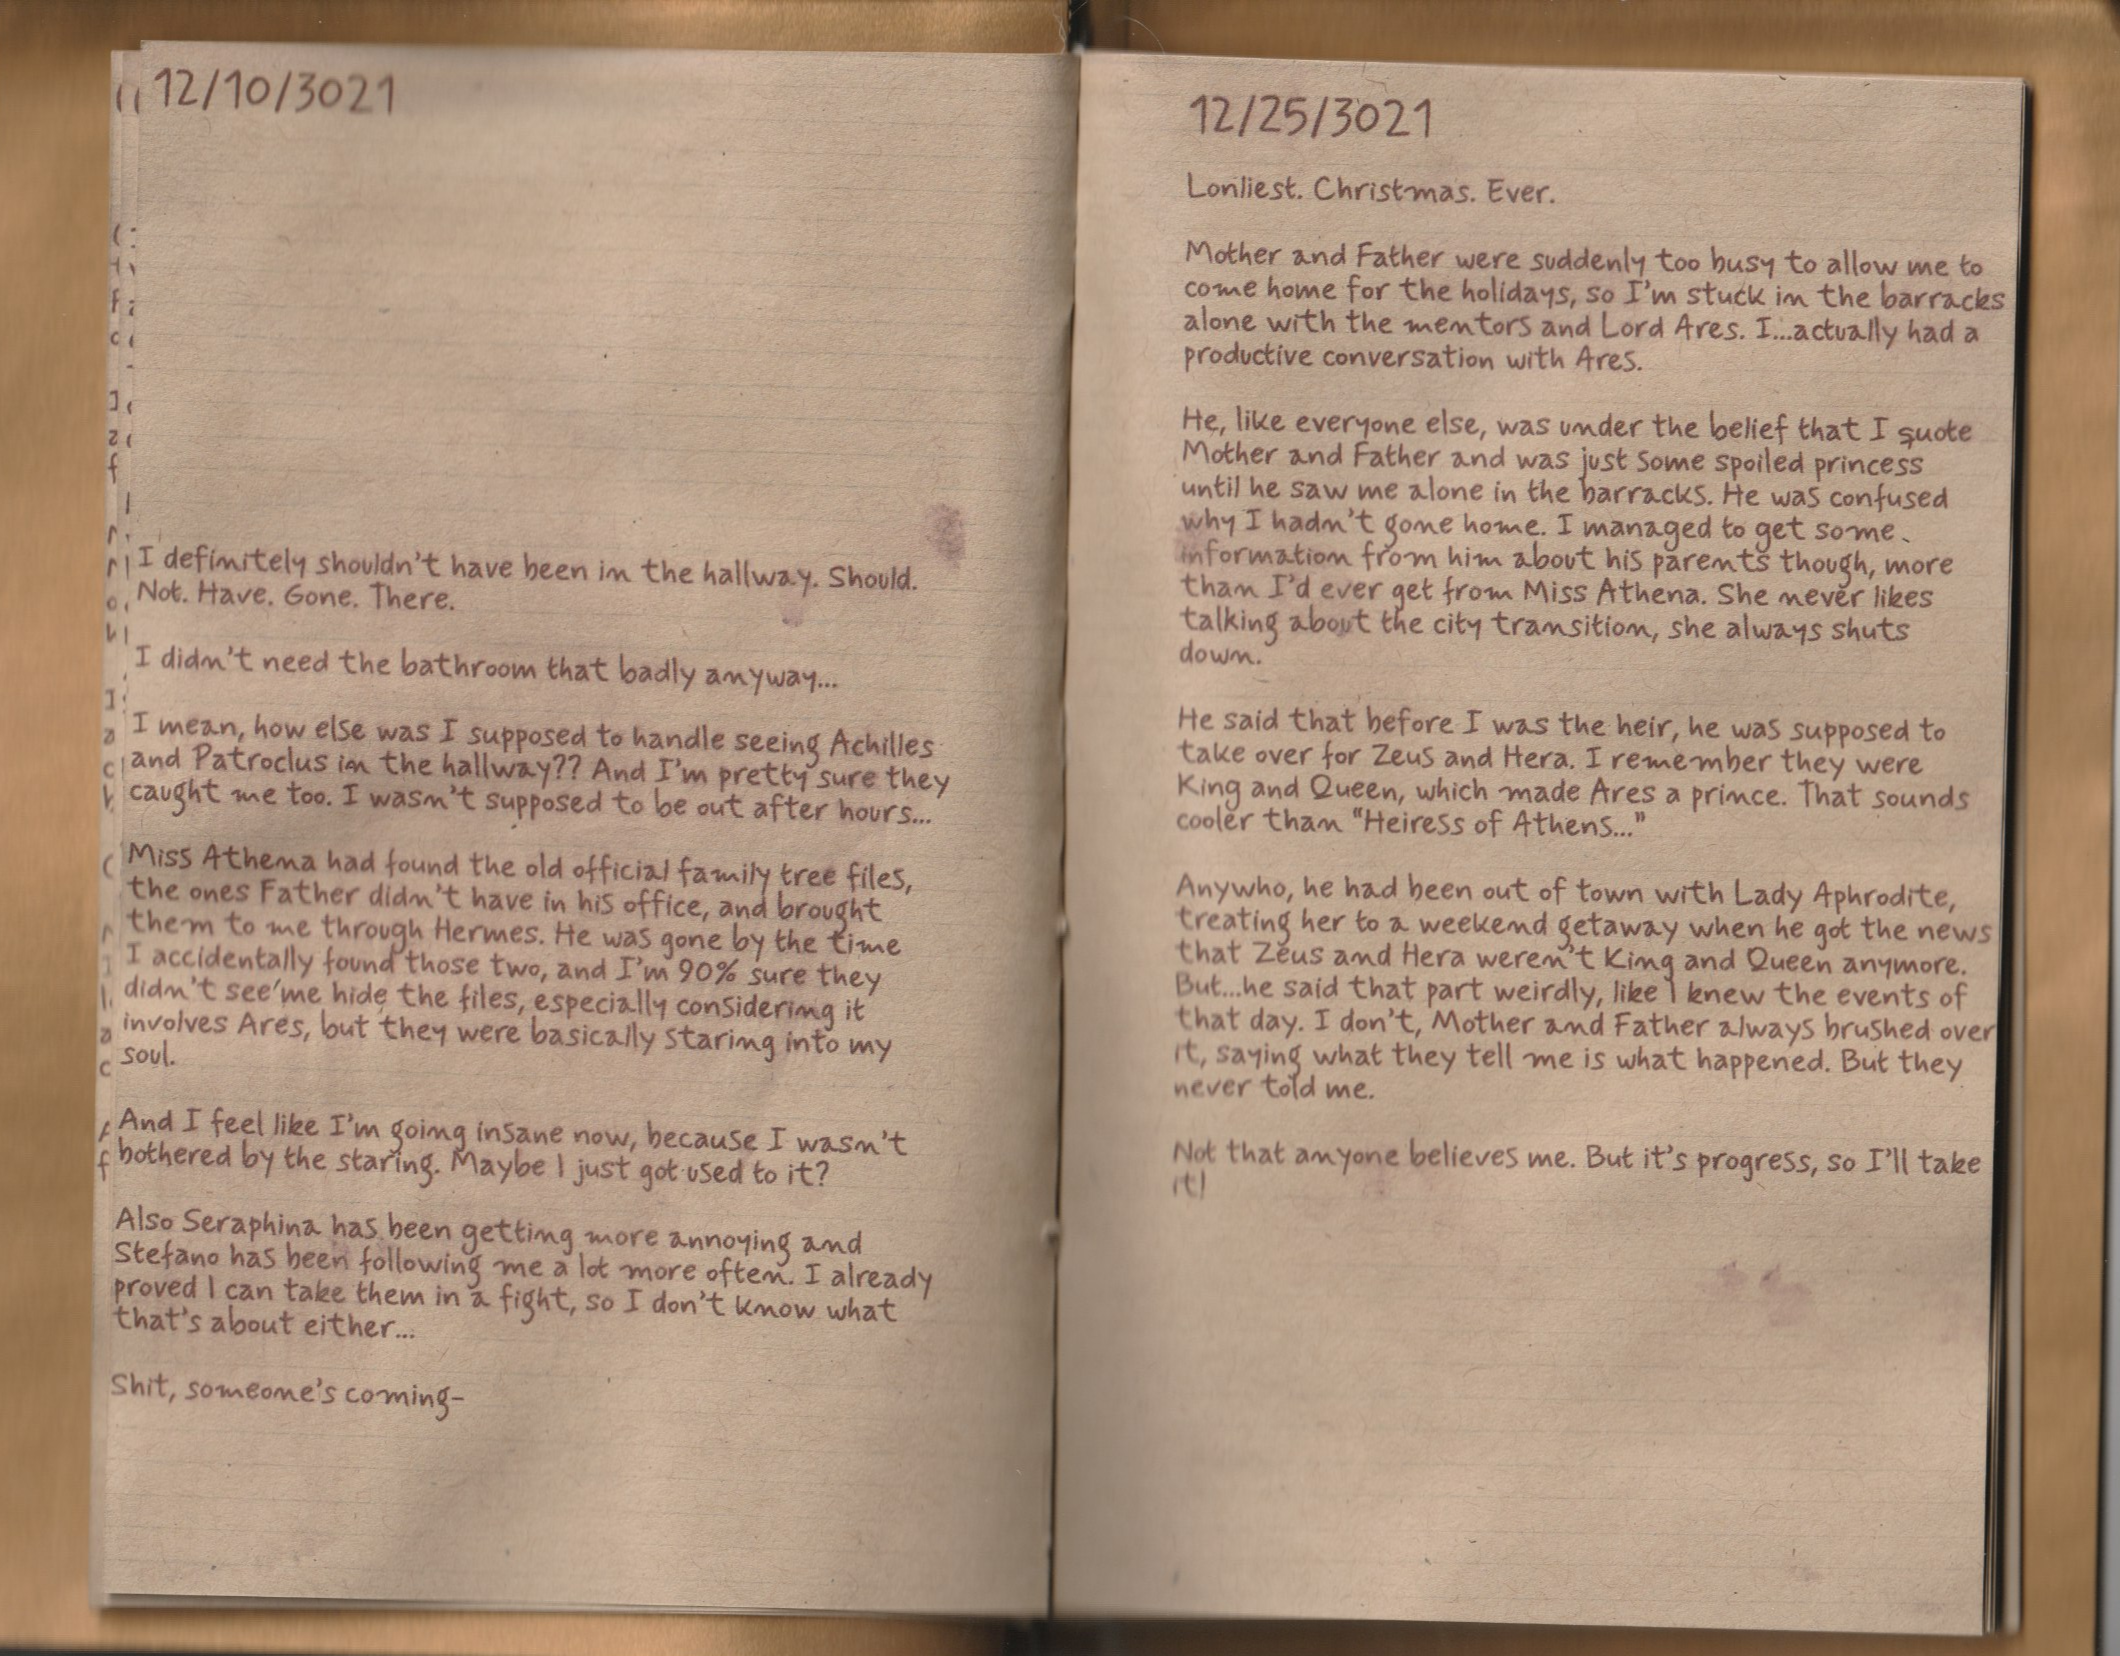 12/10/3021
I definitely shouldn't have been in the hallway. Should.
Not. Have. Gone. There.
I didn't need the bathroom that badly anyway...
I mean, how else was I supposed to handle seeing Achilles
and Patroclus in the hallway?? And I'm pretty sure they
caught me too. I wasn't supposed to be out after hours...
Miss Athena had found the old official family tree files,
the ones Father didn't have in his office, and brought
them to me through Hermes. He was gone by the time
I accidentally found those two, and I'm 90% sure they
didn't see me hide the files, especially considering it
involves Ares, but they were basically staring into my
soul.
And I feel like I'm going insane now, because I wasn't
bothered by the staring. Maybe I just got used to it?
Also Seraphina has been getting more annoying and
Stefano has been following me a lot more often. I already
proved I can take them in a fight, so I don't know what
that's about either...
Shit, someone's coming-
12/25/3021
Lonliest. Christmas. Ever.
Mother and Father were suddenly too busy to allow me to
come home for the holidays, so I'm stuck in the barracks
alone with the mentors and Lord Ares. I...actually had a
productive conversation with Ares.
He, like everyone else, was under the belief that I quote
Mother and Father and was just some spoiled princess
until he saw me alone in the barracks. He was confused
why I hadn't gone home. I managed to get some
information from him about his parents though, more
than I'd ever get from Miss Athena. She never likes
talking about the city transition, she always shuts
down.
He said that before I was the heir, he was supposed to
take over for Zeus and Hera. I remember they were
King and Queen, which made Ares a prince. That sounds
cooler than "Heiress of Athens..."
Anywho, he had been out of town with Lady Aphrodite,
treating her to a weekend getaway when he got the news
that Zeus and Hera weren't King and Queen anymore.
But...he said that part weirdly, like I knew the events of
that day. I don't, Mother and Father always brushed over
it, saying what they tell me is what happened. But they
never told me.
Not that anyone believes me. But it's progress, so I'll take
it!